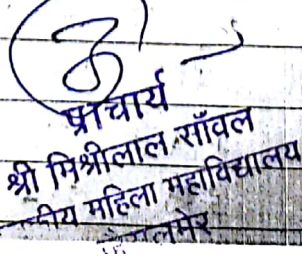 प्राचार्य
श्री मिश्रीलाल साँवल
महिला महाविद्यालय